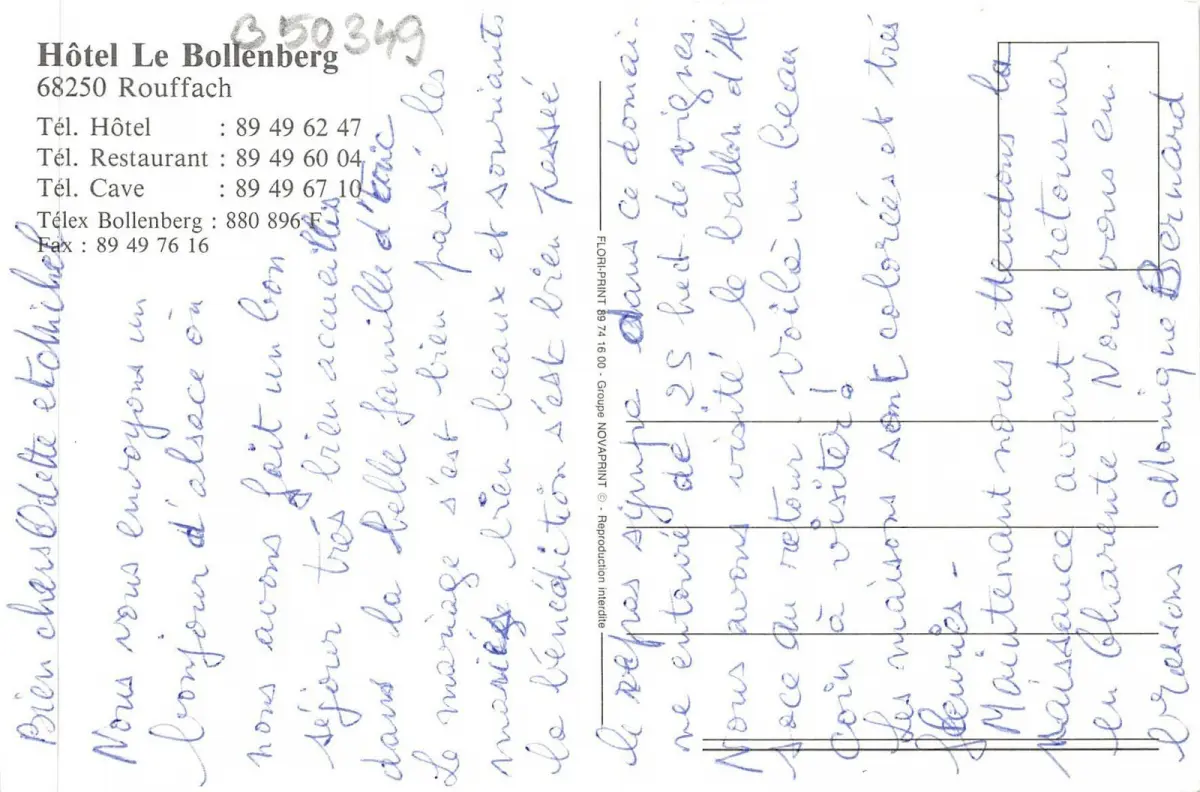 B50349
Hôtel Le Bollenberg
68250 Rouffach
Tél. Hôtel : 89 49 62 47
Tél. Restaurant : 89 49 60 04
Tél. Cave : 89 49 67 10
Télex Bollenberg : 880 896 F
Fax : 89 49 76 16
Bien chers Odette et Michel
Nous vous envoyons un
bonjour d'alsace où
nous avons fait un bon
séjour très bien accueillis
dans la belle famille d'Eric
Le mariage s'est bien passé les
mariés bien beaux et souriants
la bénédiction s'est bien passée
FLORI-PRINT 89 74 16 00 - Groupe NOVAPRINT © - Reproduction interdite
le repas sympa dans ce domai-
ne entouré de 25 hect. de vignes.
Nous avons visité le ballon d'Al
sace au retour Voilà un beau
coin à visiter !
Les maisons sont colorées et très
fleuries -
Maintenant nous attendons la
naissance avant de retourner
en Charente Nous vous em.
brassons Monique Bernard